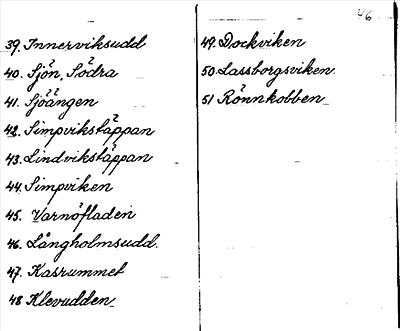 46
39. Innerviksudd
40. Sjön, Södra
41. Sjöängen
42. Simpvikstäppan
43. Lindvikstäppan
44. Simpviken
45. Varnöfladen
46. Långholmsudd.
47. Kasrummet
48 Klevudden
49. Dockviken
50. Lassborgsviken.
51 Rönnkobben